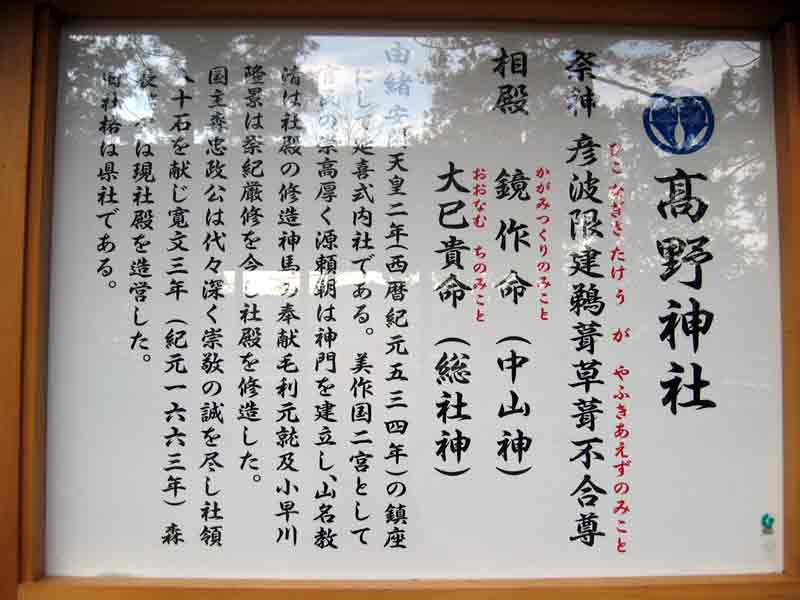 髙野神社
祭神 彦波限建鵜葺草葺不合尊
ひこなぎさたけうがやふきあえずのみこと
相殿 鏡作命(中山神)
かがみつくりのみこと
大已貴命(総社神)
おおなむちのみこと
由緒 安 天皇二年(西暦紀元五三四年)の鎮座
にして延喜式内社である。美作国二宮として
の崇高厚く源頼朝は神門を建立し、山名教
清は社殿の修造神馬の奉献毛利元就及小早川
隆景は祭紀厳修を令し社殿を修造した。
国主森忠政公は代々深く崇敬の誠を尽し社領
十石を献じ寛文三年(紀元一六六三年)森
は現社殿を造営した。
社格は県社である。